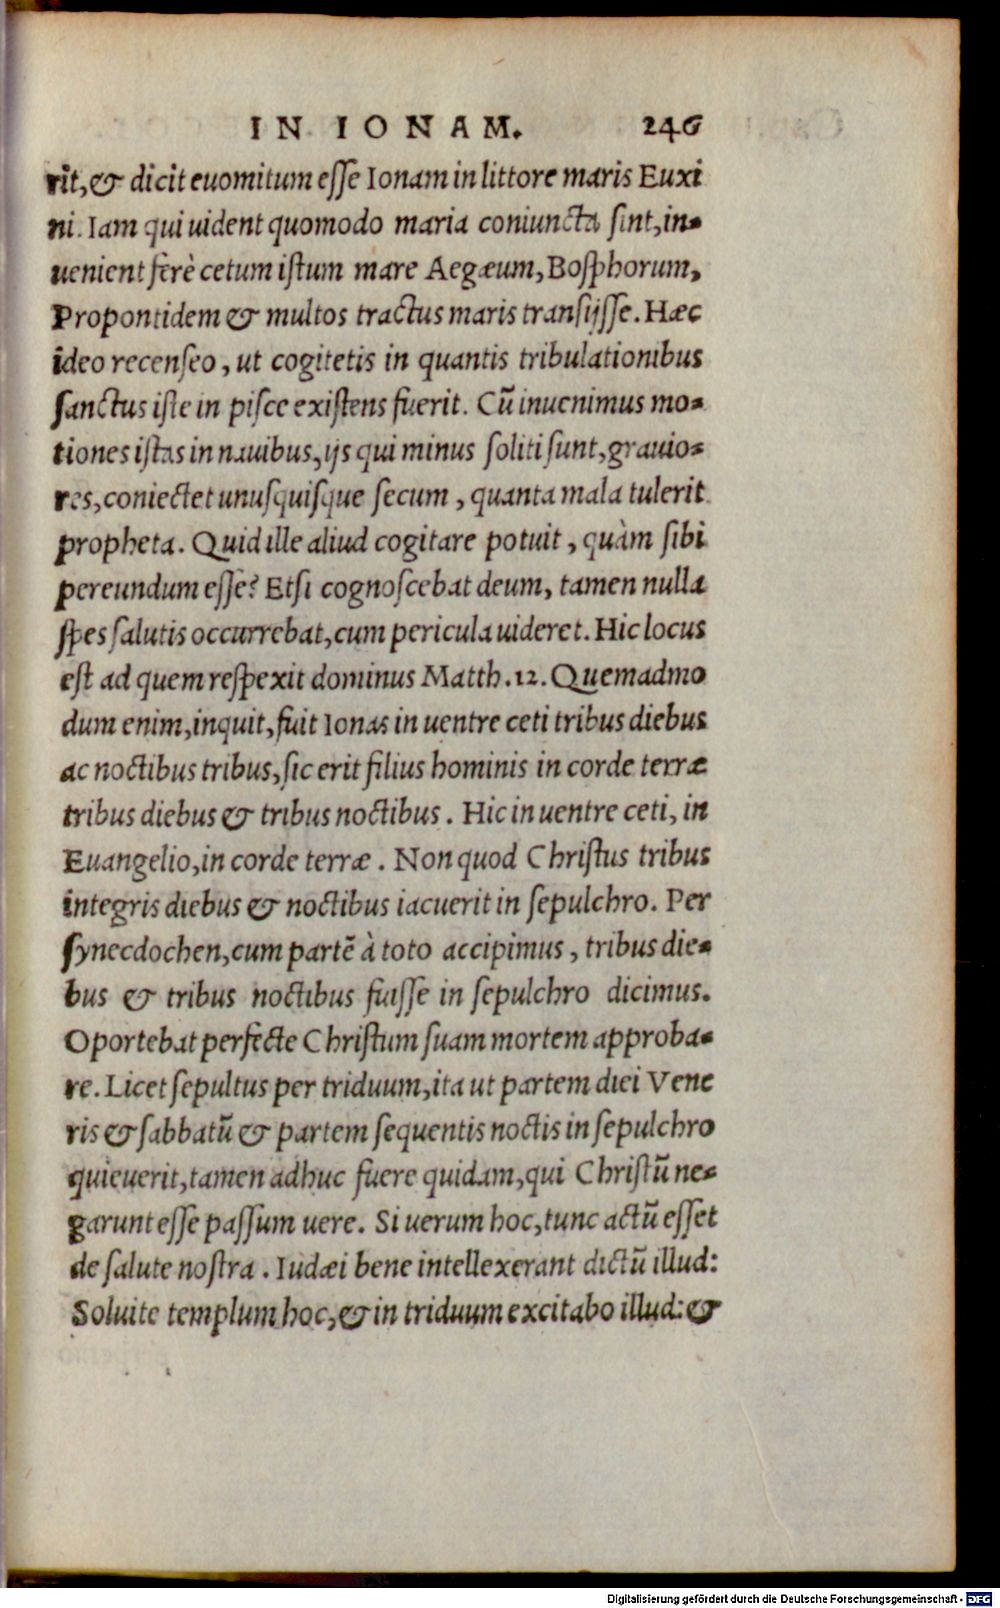 IN IONAM. 246
rit, & dicit euomitum esse Ionam in littore maris Euxi
ni. Iam qui uident quomodo maria coniuncta sint, in-
uenient ferè cetum istum mare Aegæum, Bosphorum,
Propontidem & multos tractus maris transijsse. Hæc
ideo recenseo, ut cogitetis in quantis tribulationibus
sanctus iste in pisce existens fuerit. Cũ inuenimus mo-
tiones istas in nauibus, ijs qui minus soliti sunt, grauio-
res, coniectet unusquisque secum, quanta mala tulerit
propheta. Quid ille aliud cogitare potuit, quàm sibi
pereundum esse? Etsi cognoscebat deum, tamen nulla
spes salutis occurrebat, cum pericula uideret. Hic locus
est ad quem respexit dominus Matth. 12. Quemadmo
dum enim, inquit, fuit Ionas in uentre ceti tribus diebus
ac noctibus tribus, sic erit filius hominis in corde terræ
tribus diebus & tribus noctibus. Hic in uentre ceti, in
Euangelio, in corde terræ. Non quod Christus tribus
integris diebus & noctibus iacuerit in sepulchro. Per
synecdochen, cum partẽ à toto accipimus, tribus die-
bus & tribus noctibus fuisse in sepulchro dicimus.
Oportebat perfecte Christum suam mortem approba-
re. Licet sepultus per triduum, ita ut partem diei Vene
ris & sabbatũ & partem sequentis noctis in sepulchro
quieuerit, tamen adhuc fuere quidam, qui Christũ ne-
garunt esse passum uere. Si uerum hoc, tunc actũ esset
de salute nostra. Iudæi bene intellexerant dictũ illud:
Soluite templum hoc, & in triduum excitabo illud: &
Digitalisierung gefördert durch die Deutsche Forschungsgemeinschaft - DFG